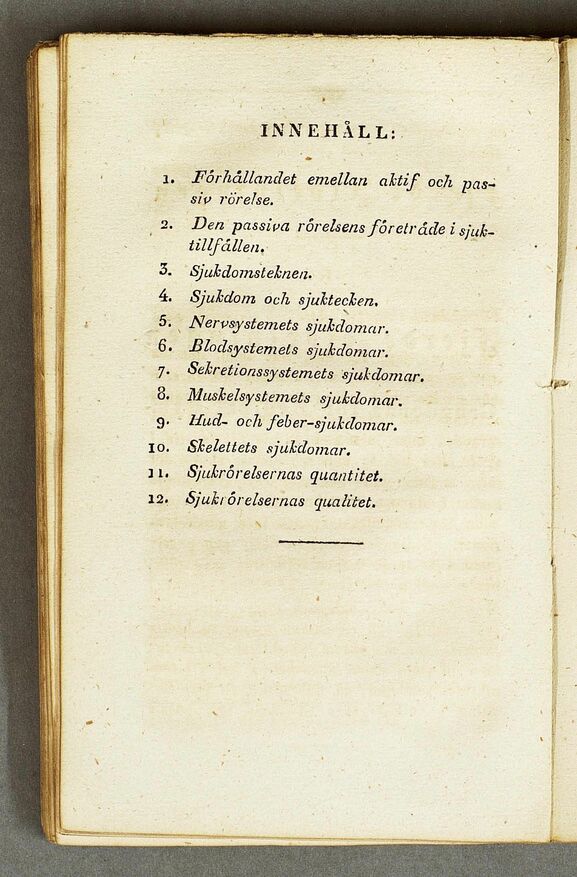 INNEHÅLL:
1. Förhållandet emellan aktif och pas-
siv rörelse.
2. Den passiva rörelsens företräde i sjuk-
tillfällen.
3. Sjukdomsteknen.
4. Sjukdom och sjuktecken.
5. Nervsystemets sjukdomar.
6. Blodsystemets sjukdomar.
7. Sekretionssystemets sjukdomar.
8. Muskelsystemets sjukdomar.
9. Hud- och feber-sjukdomar.
10. Skelettets sjukdomar.
11. Sjukrörelsernas quantitet.
12. Sjukrörelsernas qualitet.